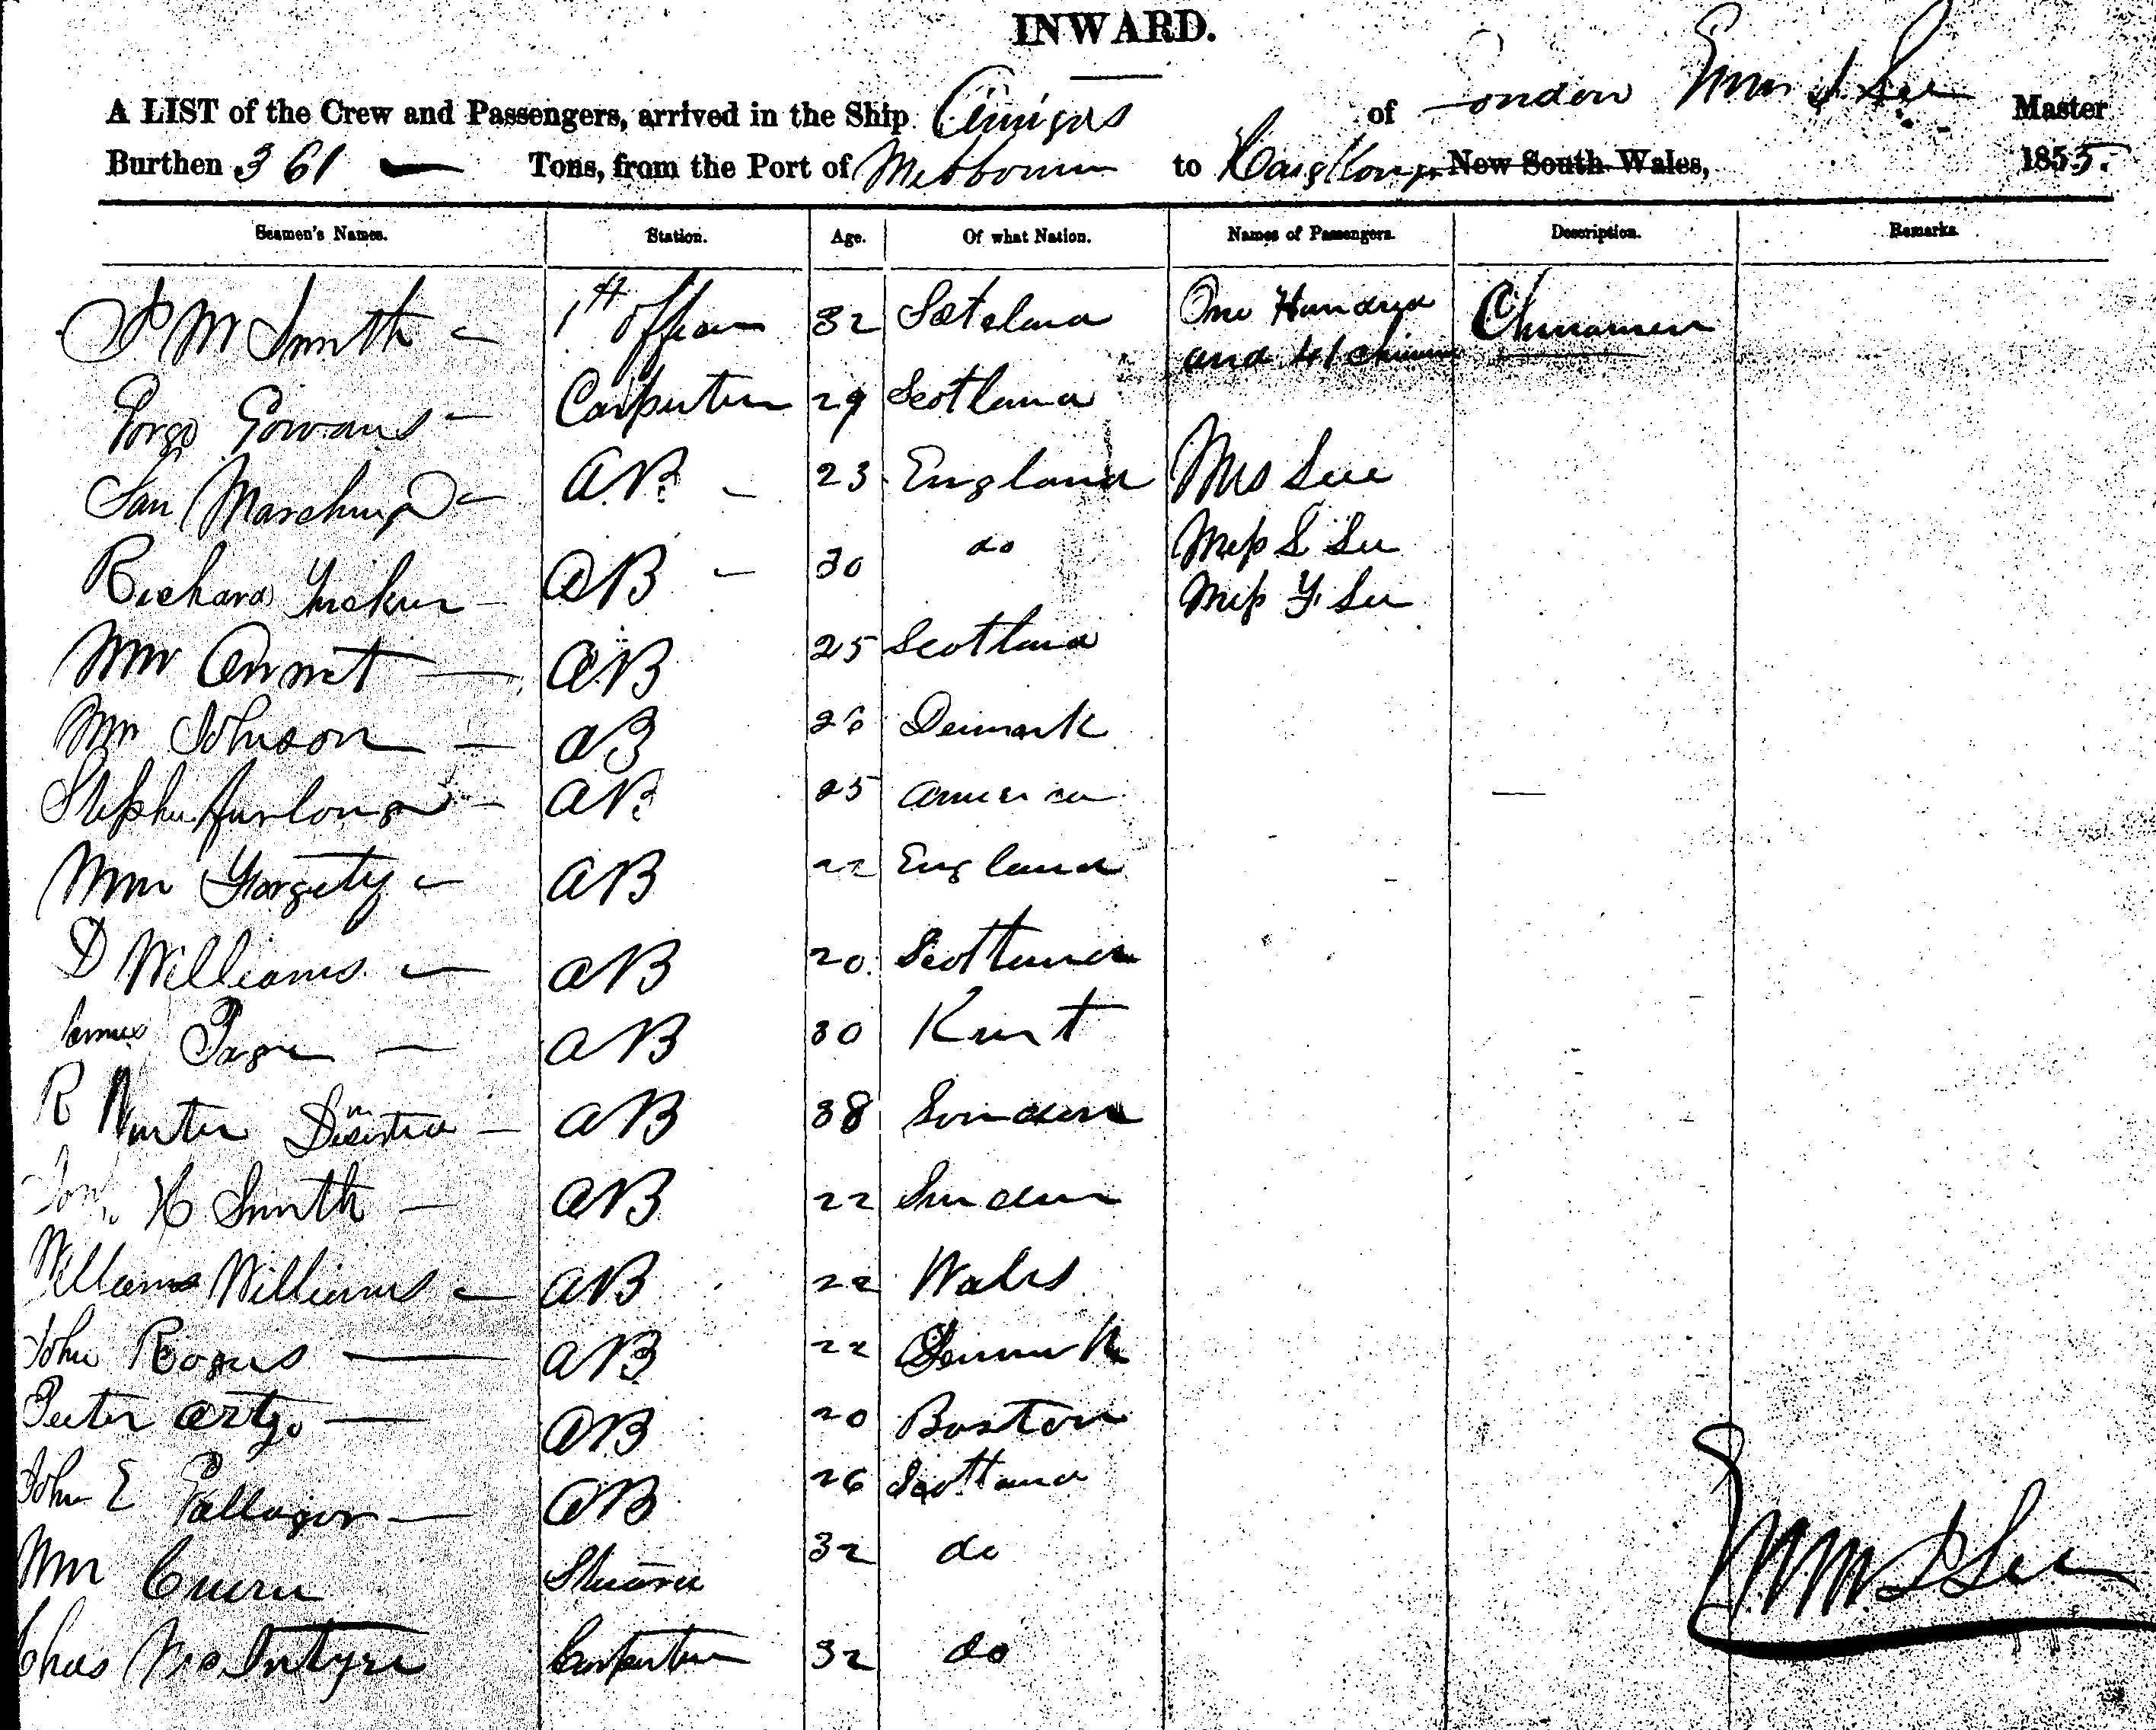 INWARD.
A LIST of the Crew and Passengers, arrived in the Ship of London Wm S See Master
Burthen 361 Tons, from the Port of Melbourne to New South Wales, 1855.
Seamen's Names. Station. Age. Of what Nation. Names of Passengers. Description. Remarks
M Smith 1st Officer 32 Scotland One Hundred Chinamen
and 41 Chinamen
Gowans Carpenter 29 Scotland
AB 23 England Mrs See
Richard Tucker AB 30 do Miss S See
Miss Y See
Wm AB 25 Scotland
Wm Johnson AB 26 Denmark
Stephen Furlong AB 25 America
Wm AB 22 England
D Williams AB 20 Scotland
James AB 30 Kent
R AB 38 London
H Smith AB 22
William Williams AB 22 Wales
John Rogers AB 22 Denmark
Peter AB 20 Boston
John E AB 26 Scotland
Wm Steward 32 do
Chas McIntyre Carpenter 32 do
Wm S See